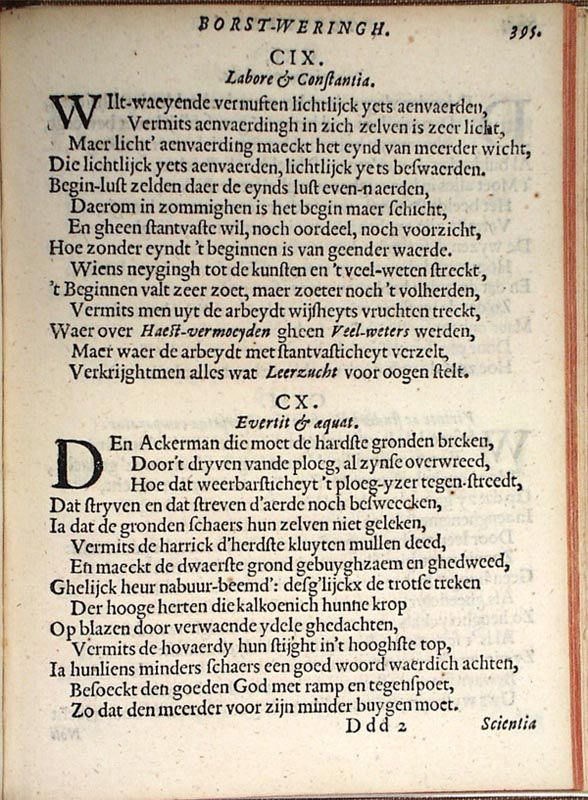 BORST-WERINGH. 395.
CIX.
Labore & Constantia.
WIlt-waeyende vernuften lichtlijck yets aenvaerden,
Vermits aenvaerdingh in zich zelven is zeer licht,
Maer licht' aenvaerding maeckt het eynd van meerder wicht,
Die lichtlijck yets aenvaerden, lichtlijck yets beswaerden.
Begin-lust zelden daer de eynds lust even-naerden,
Daerom in zommighen is het begin maer schicht,
En gheen stantvaste wil, noch oordeel, noch voorzicht,
Hoe zonder eyndt 't beginnen is van geender waerde.
Wiens neygingh tot de kunsten en 't veel-weten streckt,
't Beginnen valt zeer zoet, maer zoeter noch 't volherden,
Vermits men uyt de arbeydt wijsheyts vruchten treckt,
Waer over Haest-vermoeyden gheen Veel-weters werden,
Maer waer de arbeydt met stantvasticheyt verzelt,
Verkrijghtmen alles wat Leerzucht voor oogen stelt.
CX.
Evertit & æquat.
DEn Ackerman die moet de hardste gronden breken,
Door't dryven vande ploeg, al zynse overwreed,
Hoe dat weerbarsticheyt 't ploeg-yzer tegen-streedt,
Dat stryven en dat streven d'aerde noch besweecken,
Ia dat de gronden schaers hun zelven niet geleken,
Vermits de harrick d'herdste kluyten mullen deed,
En maeckt de dwaerste grond gebuyghzaem en ghedweed,
Ghelijck heur nabuur-beemd': desg'lijckx de trotse treken
Der hooge herten die kalkoenich hunne krop
Op blazen door verwaende ydele ghedachten,
Vermits de hovaerdy hun stijght in't hooghste top,
Ia hunliens minders schaers een goed woord waerdich achten,
Besoeckt den goeden God met ramp en tegenspoet,
Zo dat den meerder voor zijn minder buygen moet.
Ddd 2 Scientia